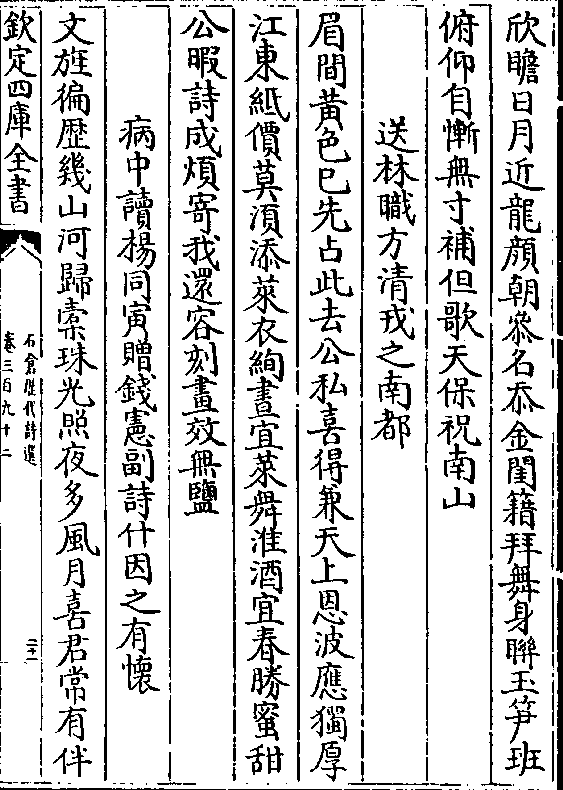 欣瞻日月近龍顔朝叅名忝金閨籍拜舞身聯玉笋班
俯仰自慚無寸補但歌天保祝南山
送林職方清戎之南都
眉間黄色已先占此去公私喜得兼天上恩波應獨厚
江東紙價莫湏添萊衣絢晝宜萊舞淮酒宜春勝蜜甜
公暇詩成煩寄我還容刻畫效無鹽
病中讀楊同寅贈錢憲副詩什因之有懷
文旌徧歴幾山河歸橐珠光照夜多風月喜君常有伴
欽定四庫全書
石倉歴代詩選
卷三百九十二
二十二